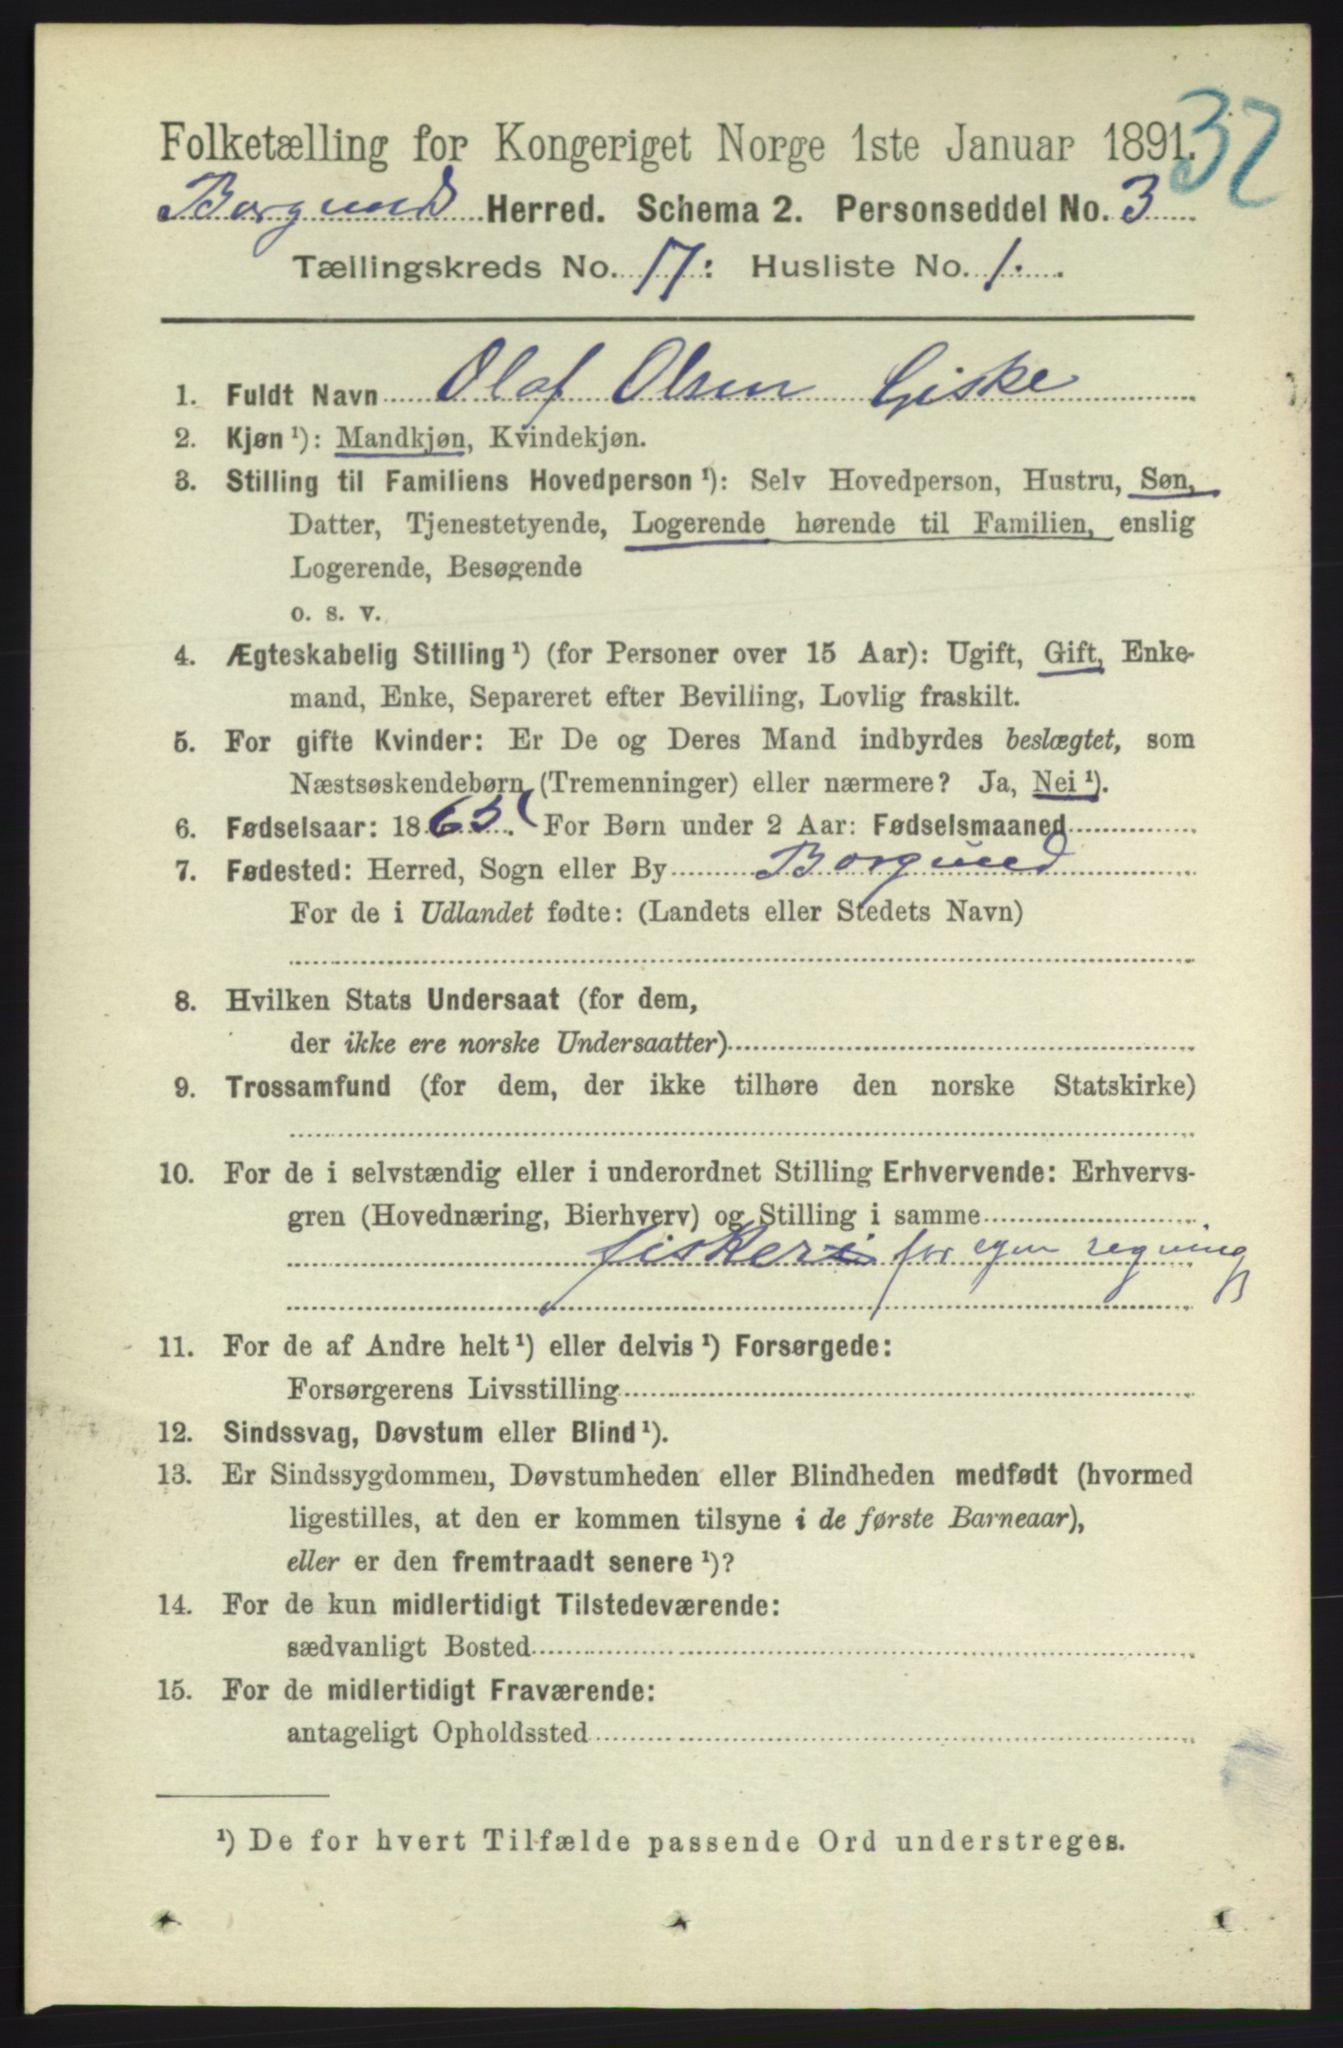 32
Folketælling for Kongeriget Norge 1ste Januar 1891.
Borgund Herred. Schema 2. Personseddel No. 3
Tællingskreds No. 17: Husliste No. 1.
1. Fuldt Navn Olaf Olsen Giske
2. Kjøn ¹): Mandkjøn, Kvindekjøn.
3. Stilling til Familiens Hovedperson ¹): Selv Hovedperson, Hustru, Søn,
Datter, Tjenestetyende, Logerende hørende til Familien, enslig
Logerende, Besøgende
o. s. v.
4. Ægteskabelig Stilling ¹) (for Personer over 15 Aar): Ugift, Gift, Enke-
mand, Enke, Separeret efter Bevilling, Lovlig fraskilt.
5. For gifte Kvinder: Er De og Deres Mand indbyrdes beslægtet, som
Næstsøskendebørn (Tremenninger) eller nærmere? Ja, Nei ¹).
6. Fødselsaar: 1865. For Børn under 2 Aar: Fødselsmaaned
7. Fødested: Herred, Sogn eller By Borgund
For de i Udlandet fødte: (Landets eller Stedets Navn)
8. Hvilken Stats Undersaat (for dem,
der ikke ere norske Undersaatter)
9. Trossamfund (for dem, der ikke tilhøre den norske Statskirke)
10. For de i selvstændig eller i underordnet Stilling Erhvervende: Erhvervs-
gren (Hovednæring, Bierhverv) og Stilling i samme
fiskeri for egen regning
11. For de af Andre helt ¹) eller delvis ¹) Forsørgede:
Forsørgerens Livsstilling
12. Sindssvag, Døvstum eller Blind ¹).
13. Er Sindssygdommen, Døvstumheden eller Blindheden medfødt (hvormed
ligestilles, at den er kommen tilsyne i de første Barneaar),
eller er den fremtraadt senere ¹)?
14. For de kun midlertidigt Tilstedeværende:
sædvanligt Bosted
15. For de midlertidigt Fraværende:
antageligt Opholdssted
¹) De for hvert Tilfælde passende Ord understreges.